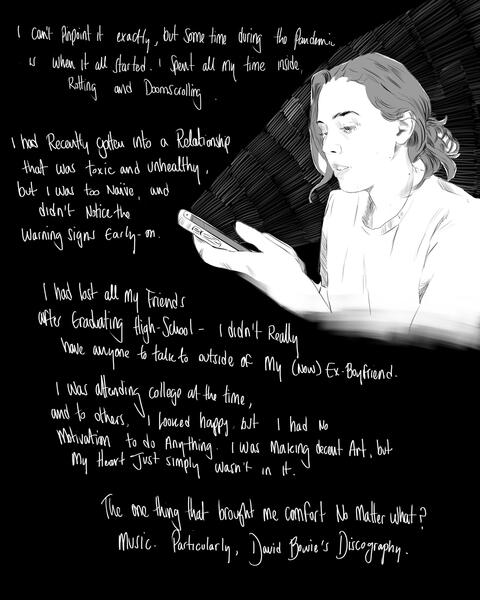 I can't Pinpoint it exactly, but Some time during the Pandemic
is when it all started. I Spent all my time inside,
Rotting and Doomscrolling.
I had Recently gotten into a Relationship
that was toxic and unhealthy,
but I was too Naive, and
didn't Notice the
Warning Signs Early-on.
I had lost all My Friends
after Graduating High-School - I didn't Really
have anyone to talk to outside of My (now) Ex-Boyfriend.
I was attending college at the time,
and to others, I looked happy, but I had No
Motivation to do Anything. I was Making decent Art, but
My Heart Just simply wasn't in it.
The one thing that brought me comfort No Matter what?
Music. Particularly, David Bowie's Discography.